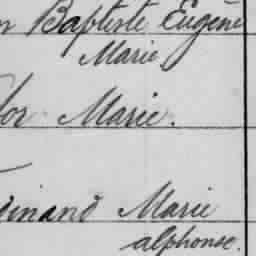 n Baptiste Eugène
Marie
tor Marie.
dinand Marie
alphonse.